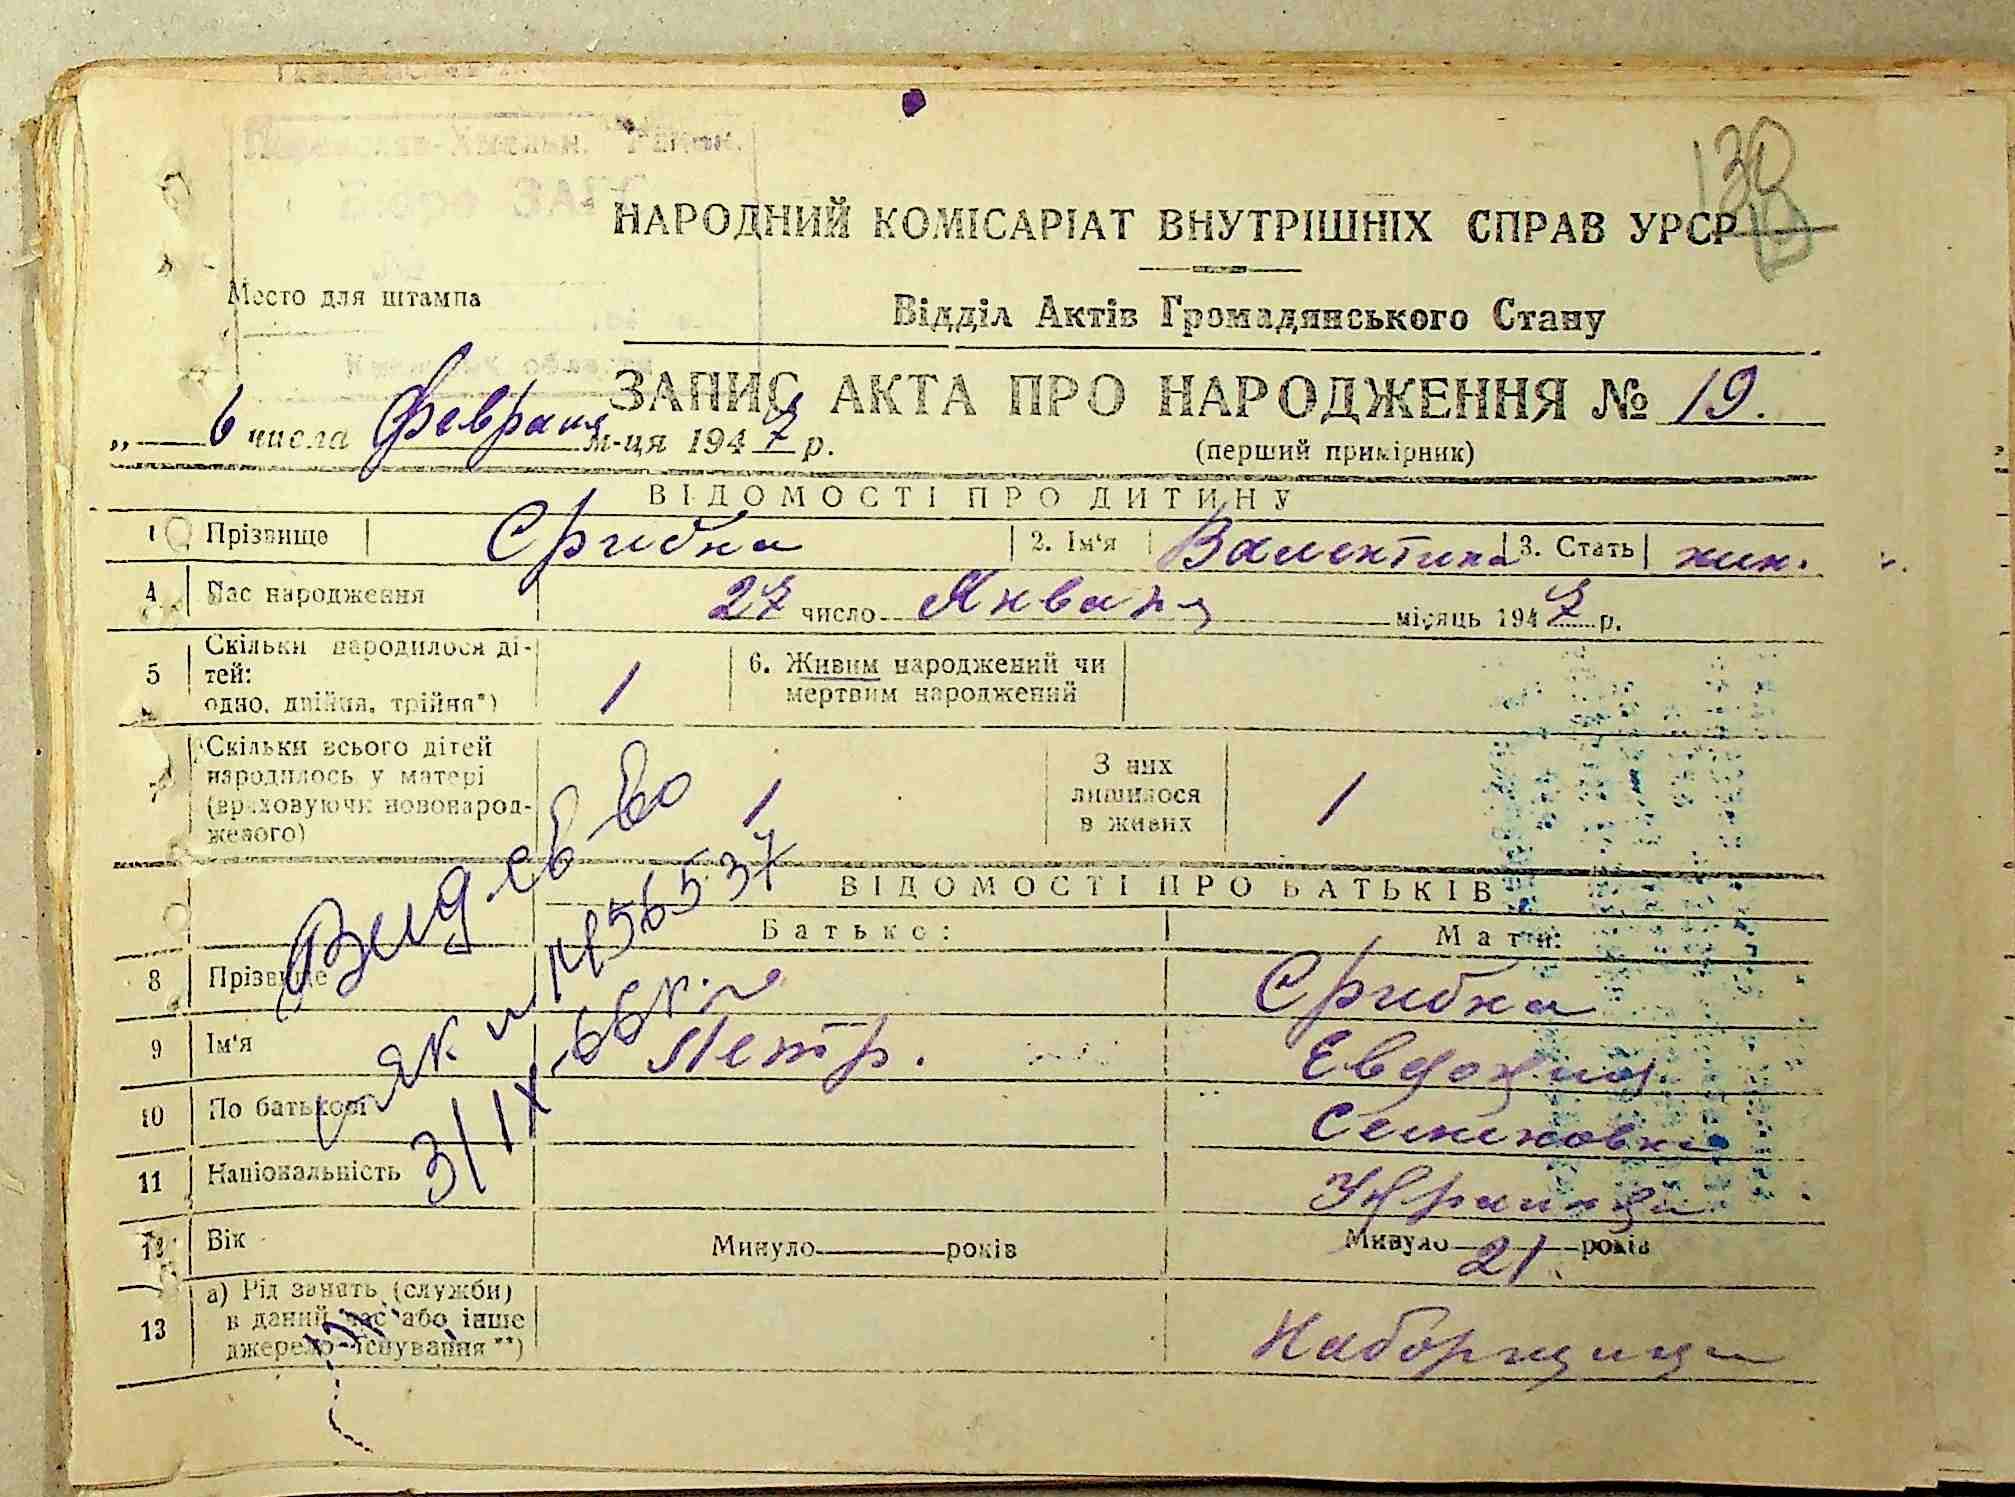 Переяслав-Хмельн. Район.
Бюро ЗАГС
138
НАРОДНИЙ КОМІСАРІАТ ВНУТРІШНІХ СПРАВ УРСР
Место для штампа
Відділ Актів Громадянського Стану
ЗАПИС АКТА ПРО НАРОДЖЕННЯ № 19.
„ 6 числа Февраля м-ця 1947 р.
(перший примірник)
ВІДОМОСТІ ПРО ДИТИНУ
1 Прізвище Срибна 2. Ім'я Валентина 3. Стать жин.
4 Час народження 27 число Января місяць 1947 р.
5 Скільки народилося ді-
тей:
одно, двійня, трійня*) 1 6. Живим народжений чи
мертвим народжений
Скільки всього дітей
народилось у матері
(враховуючи новонарод-
женого) 1 З них
лишилося
в живих 1
ВІДОМОСТІ ПРО БАТЬКІВ
Батько: Мати:
8 Прізвище Срибна
9 Ім'я Петр. Евдокия
10 По батькові Семеновна
11 Національність Украинка
12 Вік Минуло років Минуло 21 років
13 а) Рід занять (служби)
в даний час або інше
джерело існування **) Наборщица
Вид. св-во
3/IX-66